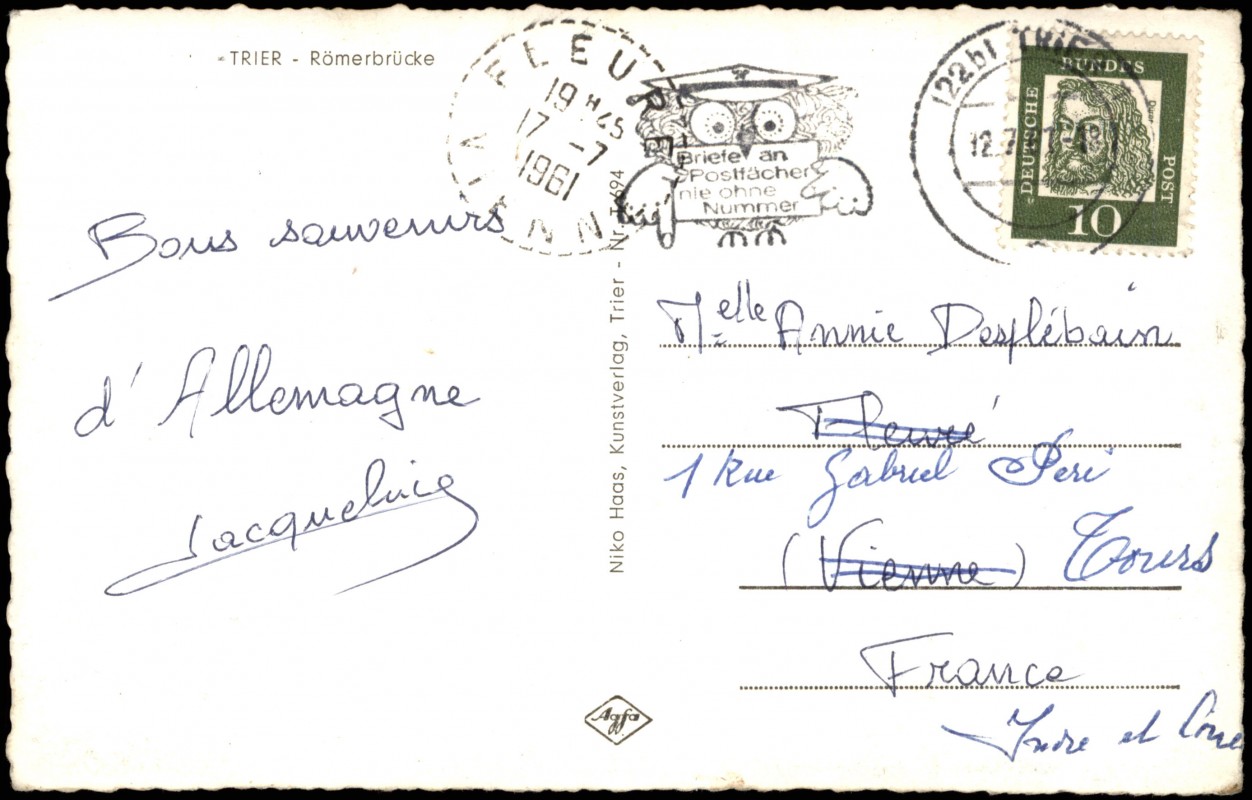 TRIER - Römerbrücke
FLEURÉ
19 H 45
17 - 7
1961
VIENNE
Briefe an
Postfächer
nie ohne
Nummer
(22b) TRIE
12.7.61-18
DEUTSCHE
BUNDES
POST
Dürer
10
Bons souvenirs
d'Allemagne
Jacqueline
Niko Haas, Kunstverlag, Trier - Nr.
Melle Annie Desflébain
Fleuré
1 Rue Gabriel Peri
(Vienne) Tours
France
Indre et Loire
Agfa